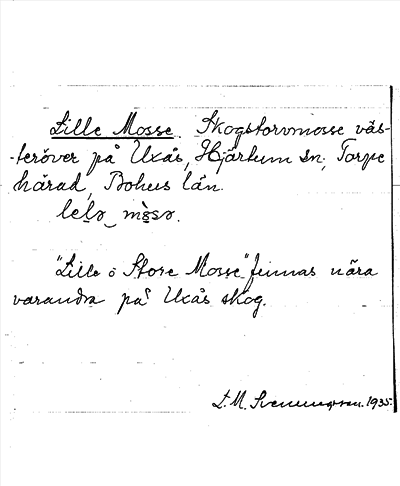 Lille Mosse. Skogstorvmosse väs-
-teröver på Uxås, Hjärtum sn, Torpe
härad, Bohus län.
"Lille ö Store Mosse" finnas nära
varandra på Uxås skog.
L. M. Svenungsson. 1935.